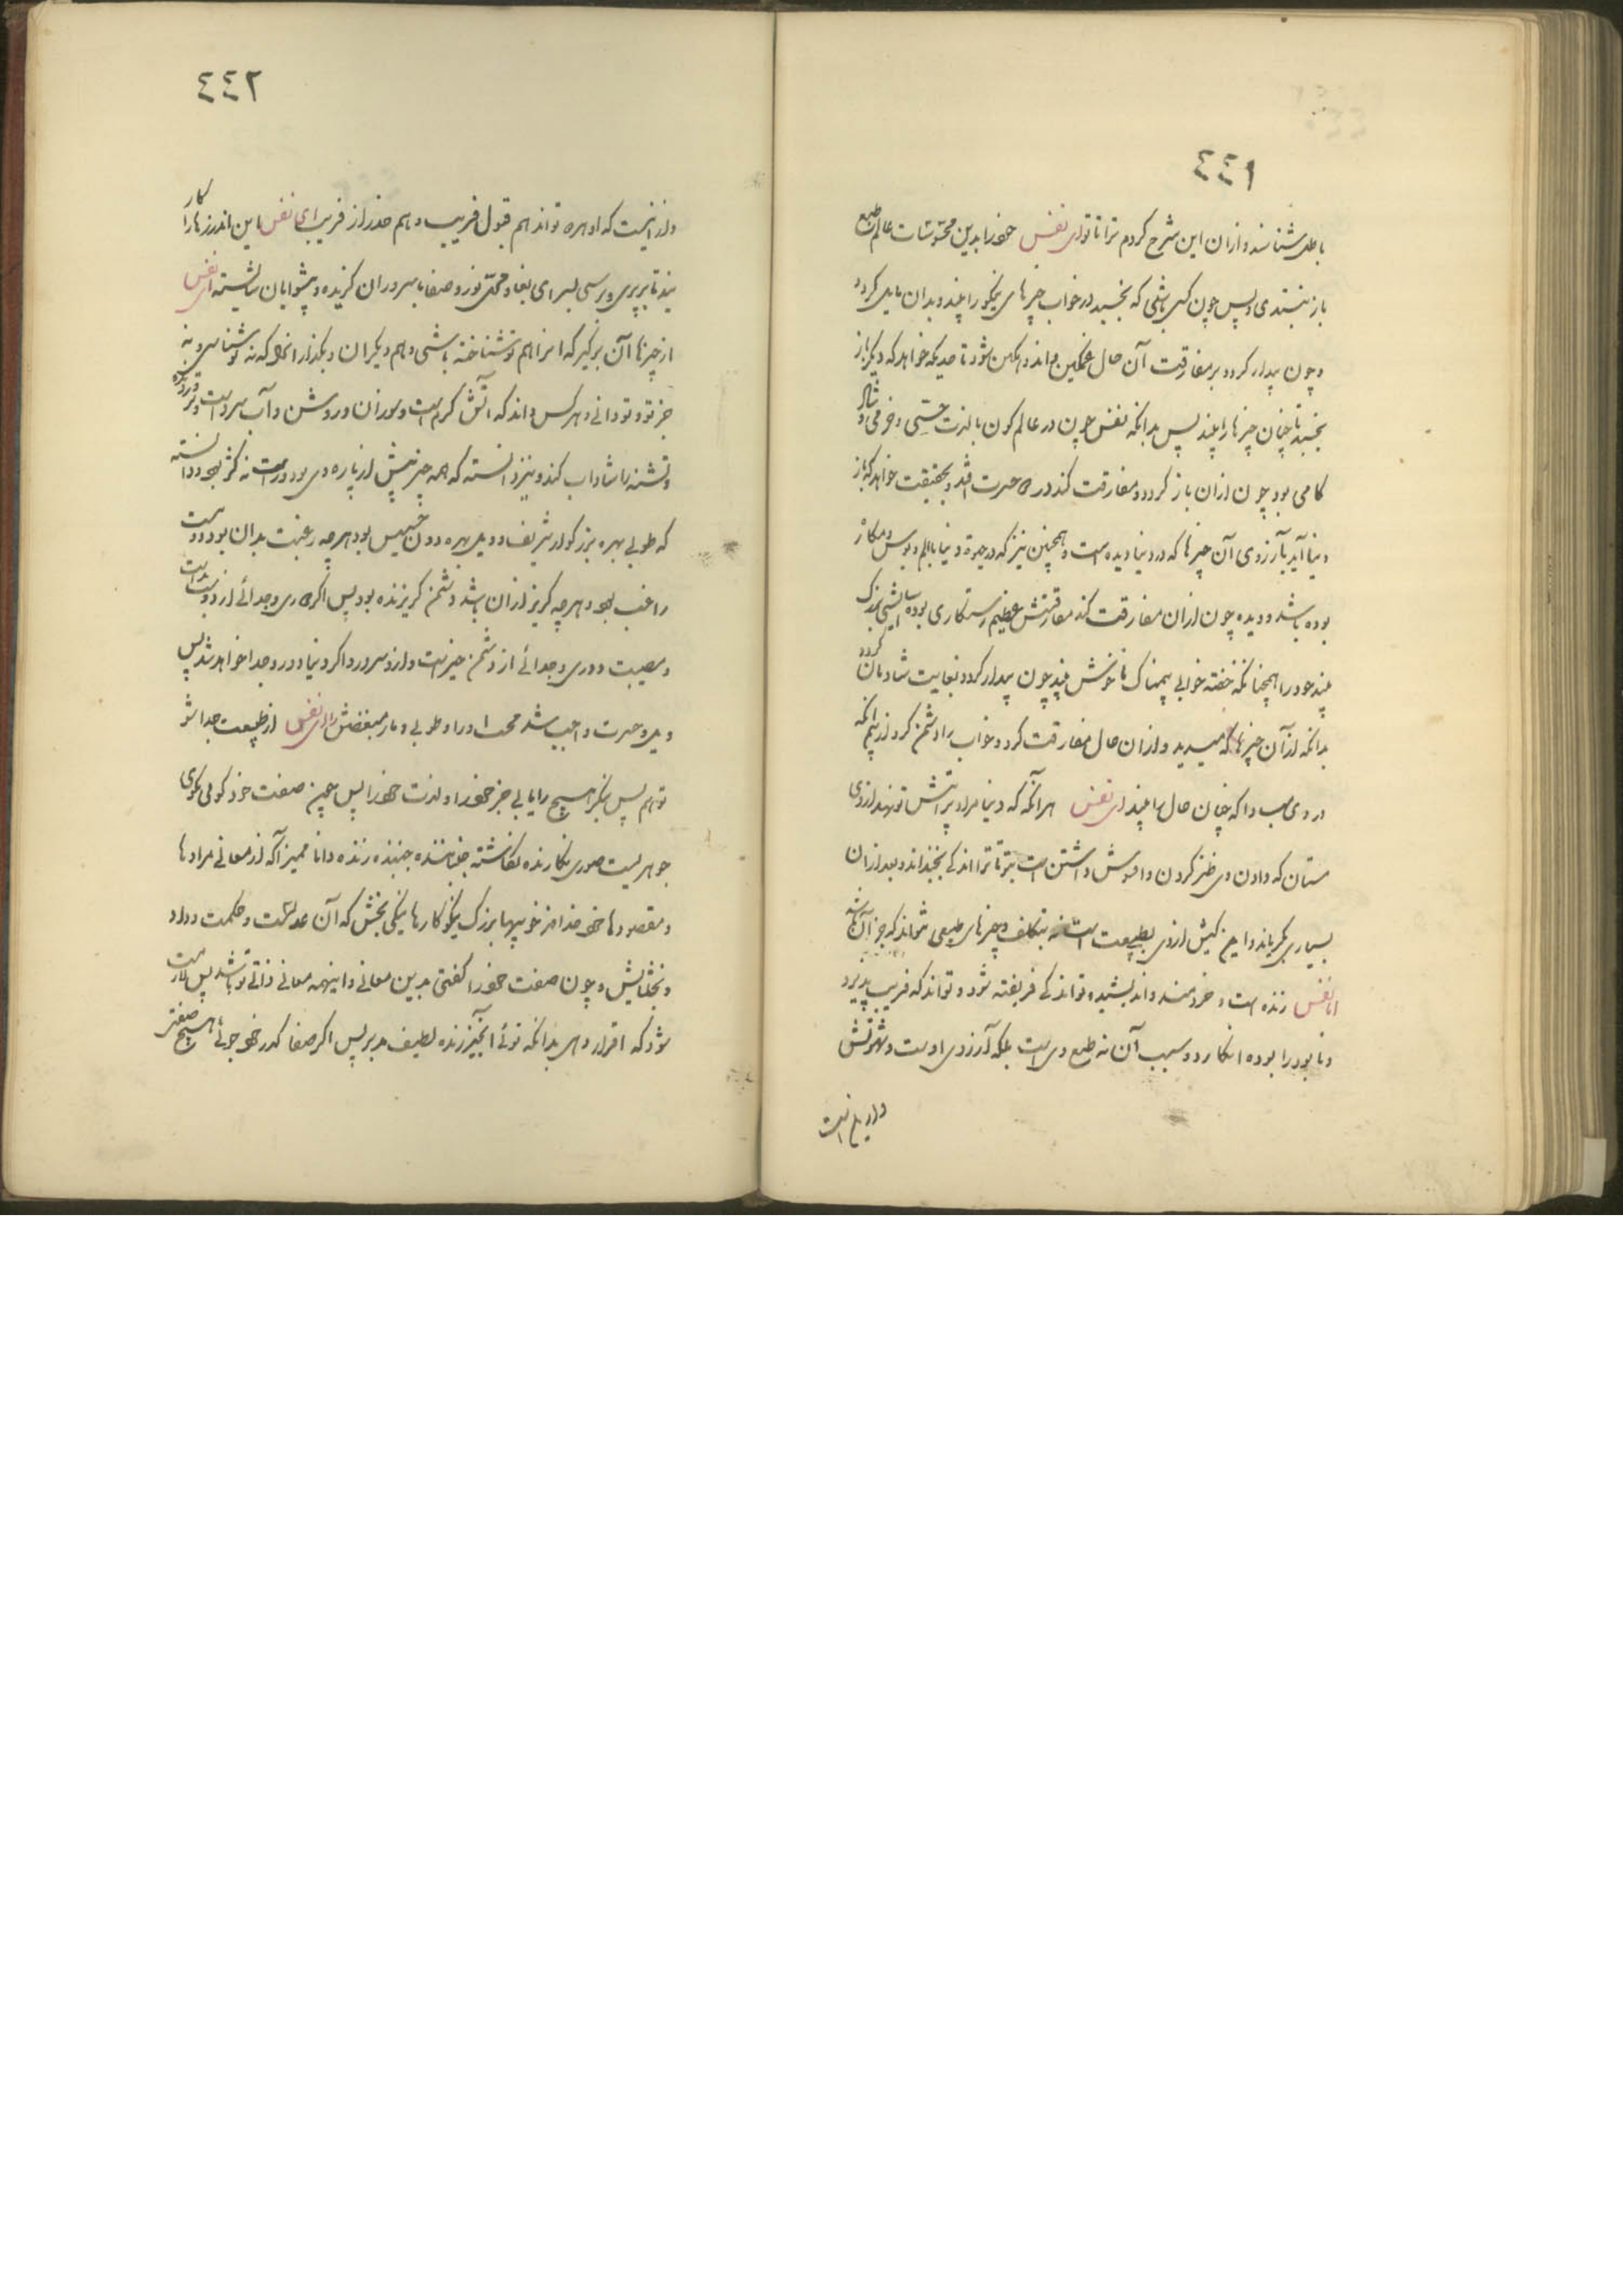 ٤٤١
باطل شناسند و ازان این شرح کردم ترا تا تو ای نفس خود را بدین محسوسات عالم طبع
باز نبندی و پس چون کسی باشی که بخسبد در خواب چیزهای نیکو را بیند و بدان مایل گردد
و چون بیدار گردد بر مفارقت آن حال غمگین و اندوهگین شود تا حدیکه خواهد که دیگر باز
بخسبد تا چنان چیزها را بیند پس بدانکه نفس چون در عالم کون با لذت حسی و خرمی و شاد
کامی بود چون ازان باز گردد و مفارقت کند در حسرت افتد و بحقیقت خواهد که باز
دنیا آید بآرزوی آن چیزها که در دنیا دیده است و همچنین نیز که در حیوة دنیا با الم و بؤس و مکاره
بوده باشد و دیده چون ازان مفارقت کند مفارقتش عظیم رستگاری بوده آسایشی بزرگ
بیند خود را همچنانکه خفته خوابی بیمناک ناخوش بیند چون بیدار گردد بغایت شادمان گردد
بدانکه از آن چیزها که میدید و ازان حال مفارقت کرد و خواب را دشمن گرد از بیم آنکه
در وی مبادا که چنان حال را بیند ای نفس هرآنکه که دنیا مراد پرآتش تو نهد از وی
مستان که دادن وی طنز کردن و افسوس داشتن است بتو تا ترا اندکی بخنداند و بعد ازان
بسیاری بگریاند و این کنش از وی بطبیعت است نه بتکلف و چیزهای طبیعی نتواند که جز آن باشد
اما نفس زنده است و خردمند و اندیشنده تواند که فریفته شود و تواند که فریب پذیرد
و نابود را بوده انگارد و سبب آن نه طبع وی است بلکه آرزوی اوست و شهوتش
و از اینست
٤٤٢
و از اینست که او هم تواند هم قبول فریب و هم حذر از فریب ای نفس باین اندرزها را کار
بند تا بپری و برسی بسرای بقا و محل نور و صفا با سروران گزیده و پیشوایان شایسته ای نفس
از چیزها آن برگیر که آنرا هم تو شناخته باشی و هم دیگران و بگذار آنرا که نه تو شناسی و نه
جز تو و تو دانی و هرکس داند که آتش گرم است و سوزان و روشن و آب سرد است و تر
و تشنه را شاداب کند و نیز دانسته که همه چیز بیش از پاره وی بود و راست نه کژ بود و دانسته
که طوبی بهره بزرگوار شریف و ویل بهره دون خسیس بود هرچه رغبت بدان بود دوست
راغب بود و هرچه گریز ازان باشد دشمن گریزنده بود پس اگر دوری و جدائی از دوست بد است
و مصیبت دوری و جدائی از دشمن خیر است و ازو سرور و اگر دنیا دور و جدا خواهد شد پس
ویل و حسرت واجب شد محب او را و طوبی و مار مبغضش را ای نفس از طبیعت جدا شو
توهم پس بنگر هیچ را یابی جز خود را و لذت خود را پس چنین صفت خود گو می گوی
جوهریست صوری نگارنده نگاشته جنباننده جنبنده زنده دانا ممیز آگه از معانی مرادها
و مقصودها خرد خداوند خوبیها بزرگ نیکو کارها نیکی بخش که آن عدلست و حکمت و داد
و بخشایش و چون صفت خود را گفتی بدین معانی و اینهمه معانی ذاتی تو باشد پس لازمست
تو را که اقرار دهی بدانکه توئی انچیز زنده لطیف مدبر پس اگر صفا کدر خو جوئی هیچ صفتی